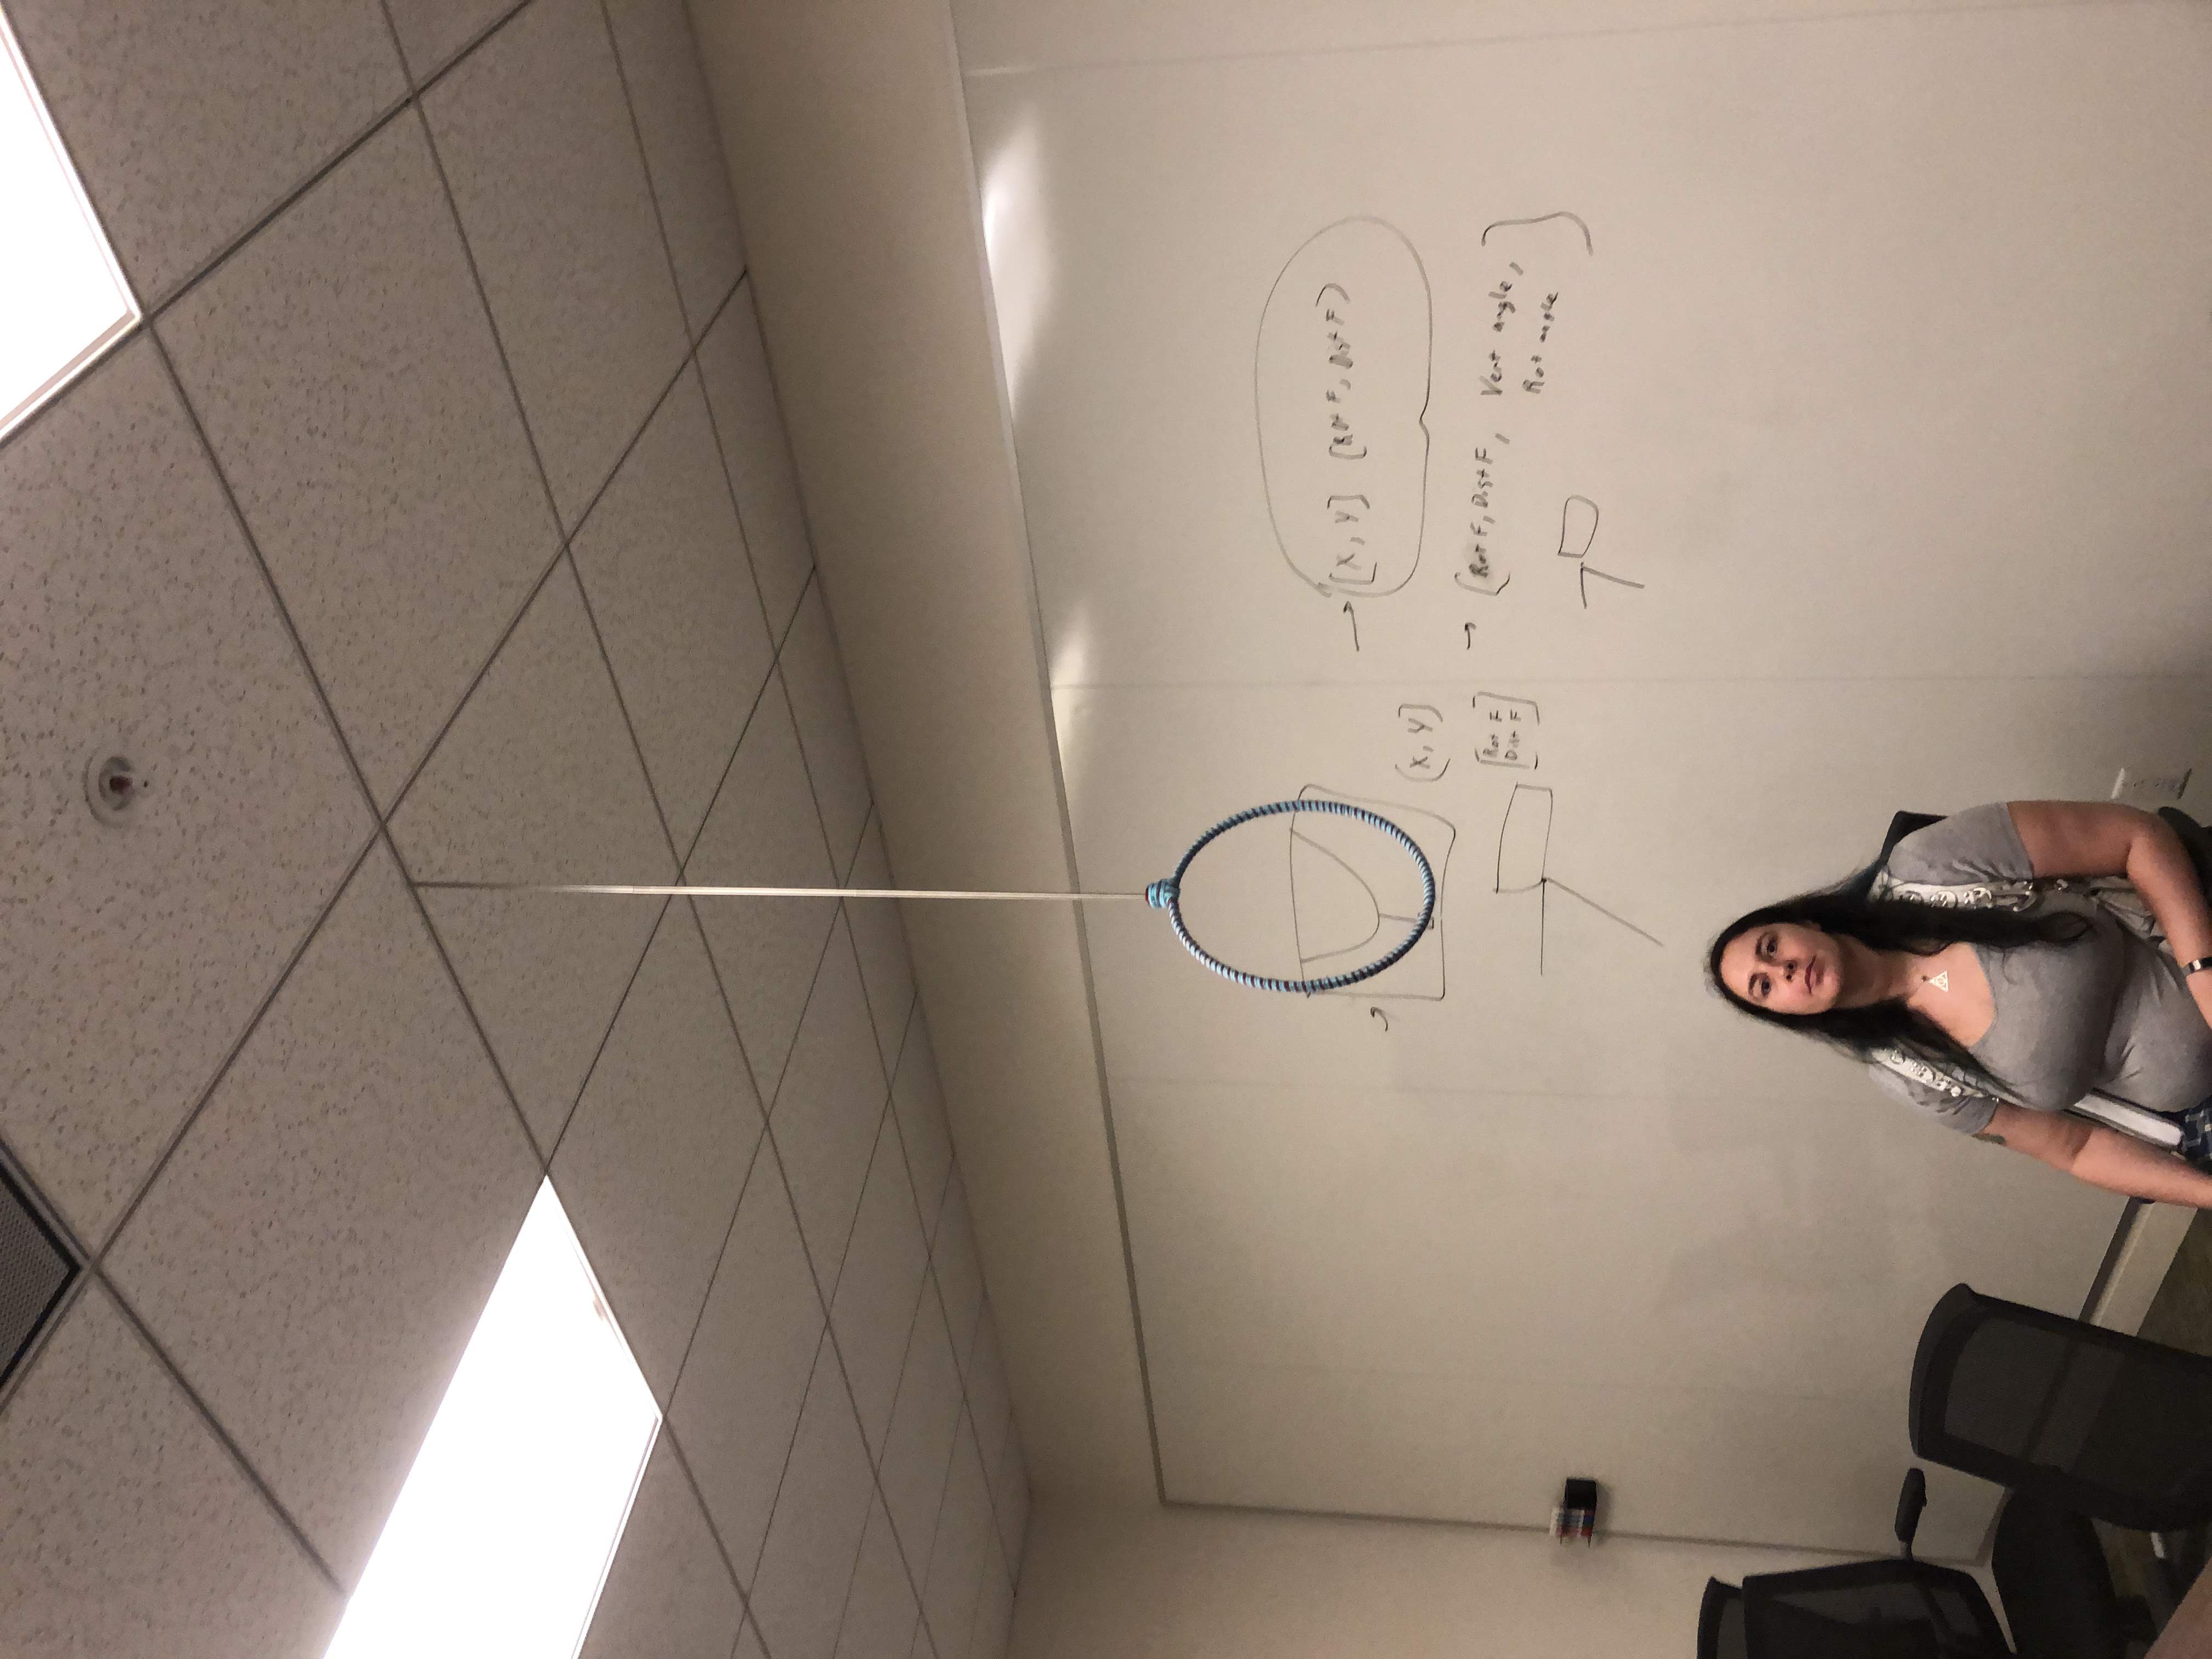 [X, Y] [Rot F, Dist F]
(X, Y]
[Rot F
Dist F]
[Rot F, Dist F, Vert angle,
Rot angle]